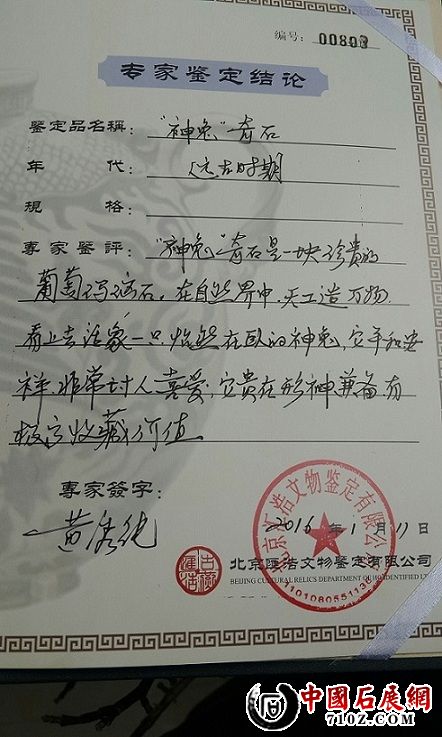 编号: 00803
专家鉴定结论
鉴定品名稱: "神兔"奇石
年代: 远古时期
規格:
專家鉴評: "神兔"奇石是一块珍貴的
葡萄玛瑙石,在自然界中,天工造万物,
看上去活象一只怡然在卧的神兔,它平和安
祥,非常讨人喜爱,它贵在形神兼备有
极高收藏价值.
專家簽字:
2016年1月11日
北京匯浩文物鉴定有限公司
BEIJING CULTURAL RELICS DEPARTMENT OF IDENTIFIED LTD
北京汇浩文物鉴定有限公司
1101080551138
中國石展網
7102.COM